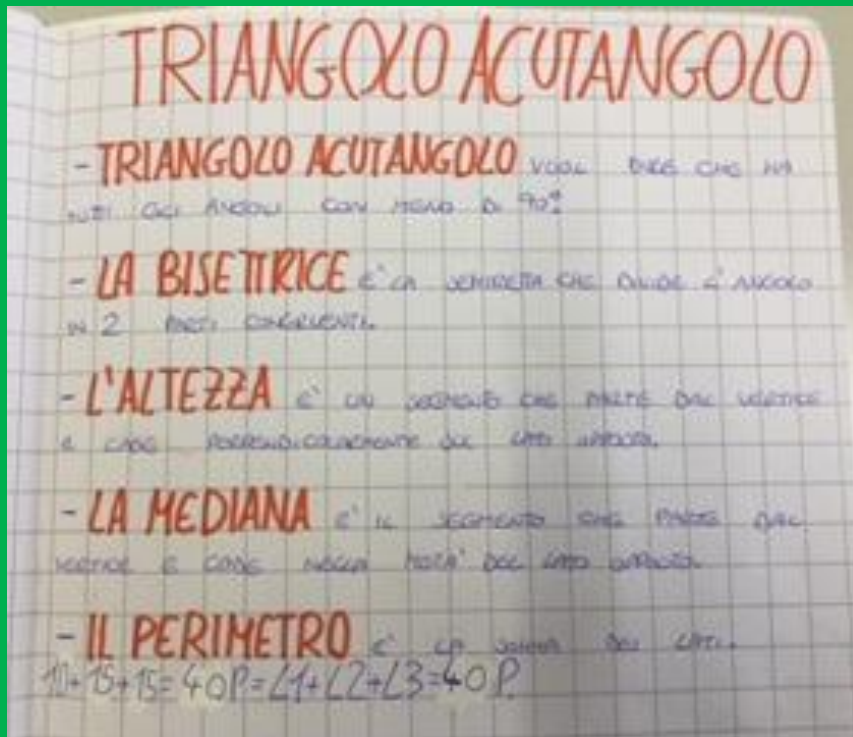 TRIANGOLO ACUTANGOLO
- TRIANGOLO ACUTANGOLO VUOL DIRE CHE HA
TUTTI GLI ANGOLI CON MENO DI 90°
- LA BISETTRICE E' LA SEMIRETTA CHE DIVIDE L'ANGOLO
IN 2 PARTI CONGRUENTI.
- L'ALTEZZA E' UN SEGMENTO CHE PARTE DAL VERTICE
E CADE PERPENDICOLARMENTE SUL LATO OPPOSTO.
- LA MEDIANA E' IL SEGMENTO CHE PARTE DAL
VERTICE E CADE NELLA META' DEL LATO OPPOSTO.
- IL PERIMETRO E' LA SOMMA DEI LATI.
10+15+15=40P=L1+L2+L3=40P.